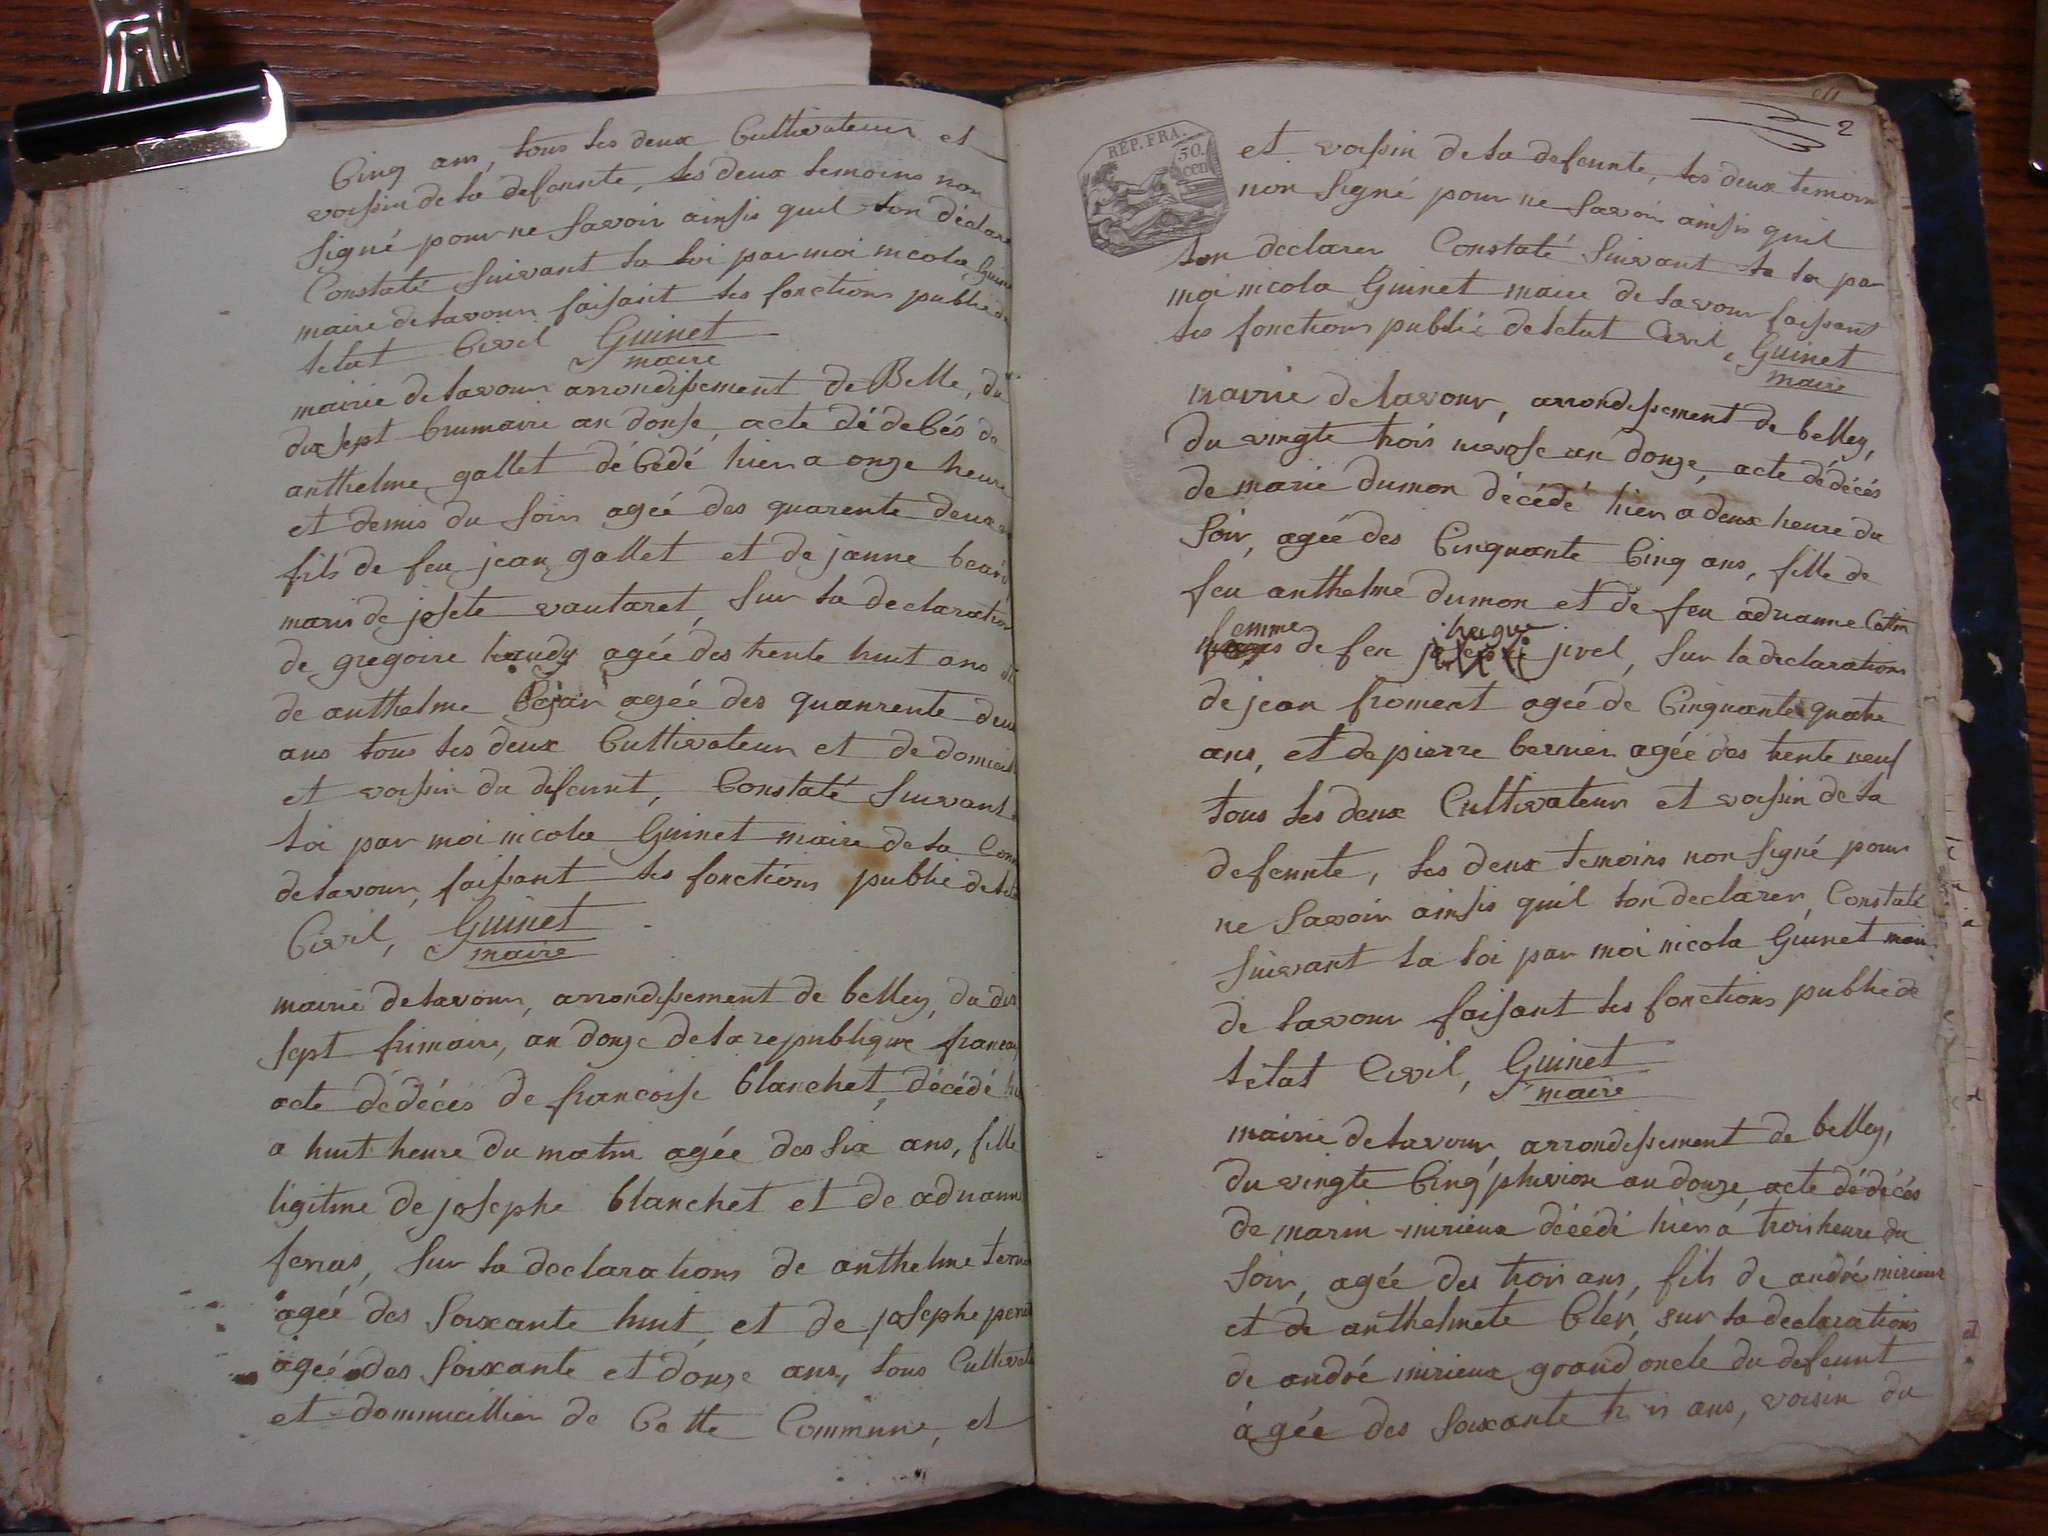 Cinq ans, tous les deux Cultivateur et
voissin de la defeunte, les deux temoins non
signé pour ne savoir ainsis quil lon déclare
Constaté suivant la loi par moi nicola Guinet
maire de lavour faisant les fonctions public de
letat Civil Guinet
maire
mairie de lavour arrondissement de Belle, du
dix sept brumaire an donse, acte dé decés de
anthelme gallet décédé hier a onze heure
et demis du soir agée des quarente deux
fils de feu jean gallet et de janne
maris de josete vautaret, sur la declaration
de gregoire agée des trente huit ans et
de anthelme agée des quanrente deux
ans tous les deux Cultivateur et de
et voissin du defeunt, Constaté suivant
loi par moi nicola Guinet maire de la
de lavour, faissant les fonctions public de
Civil, Guinet
maire
mairie de lavour, arrondissement de belley, du dix
sept frimaire, an donze de la republique
acte dédécés de francoise blanchet, décédé
a huit heure du matin agée des six ans, fille
ligitme de josephe blanchet et de adrianne
ferras, sur la declarations de anthelme
agée des soixante huit, et de josephe
agée des soixante et donze ans, tous
et dommicillier de Cette Commune, et
2
REP. FRA.
50.
cen
et voissin de la defeunte, les deux temoin
non signé pour ne savoir ainsis quil
lon declarer Constaté suivant la loi par
moi nicola Guinet maire de lavour faissant
les fonctions public de letat Civil, Guinet
maire
mairie de lavour, arrondissement de belley,
du vingte trois nivose an donze, acte dédécés
de marie dumon décédé hier a deux heure du
soir, agée des Cinquante Cinq ans, fille de
feu anthelme dumon et de feu adrianne
femme de feu jivel, sur la declarations
de jean froment agée de Cinquante quatre
ans, et de pierre bernier agée des trente neuf
tous les deux Cultivateur et voissin de la
defeunte, les deux temoins non signé pour
ne savoir ainsis quil lon declarer, Constaté
suivant la loi par moi nicola Guinet
de lavour faisant les fonctions public de
letat Civil, Guinet
maire
mairie de lavour, arrondissement de belley,
du vingte Cinq pluviose an donze, acte dédécés
de marin mirieux décédé hier a trois heure du
soir, agée des trois ans, fils de andré mirieux
et de anthelmete Cler, sur la declarations
de andré mirieux grand oncle du defeunt
àgée des soixante trois ans, voisin du